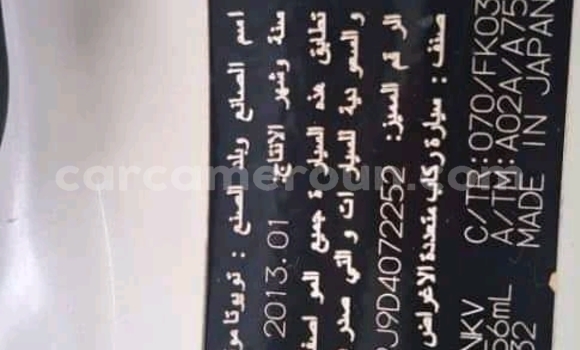 اسم الصانع وبلد الصنع : تويوتا مو
سنة وشهر الانتاج: 2013.01
تطابق هذه السيارة جميع المواصف
والسعودية للسيارات والتي
الرقم المميز: J9D4072252
صنف : سيارة ركاب متعددة الاغراض
NKV C/TR:070/FK03
56mL A/TM:A02A/A75
32 MADE IN JAPAN
carcameroun.com